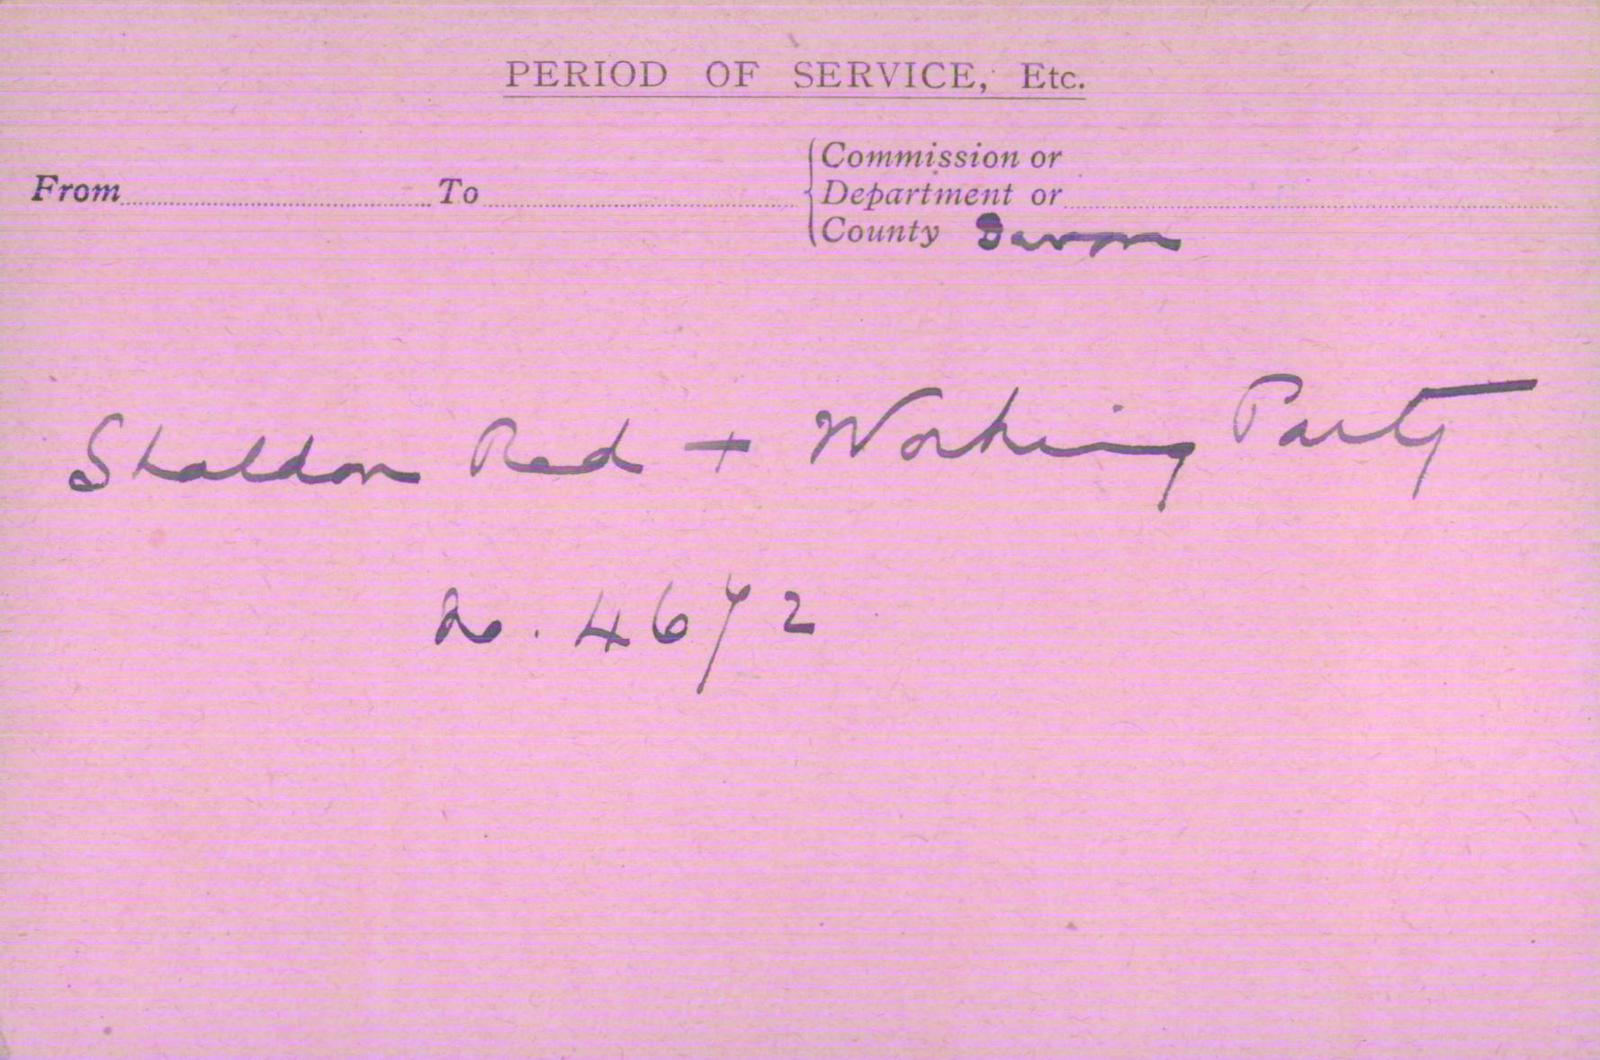 PERIOD OF SERVICE, Etc.
From To Commission or
Department or
County Devon
Shaldon Red + Working Party
No. 4672